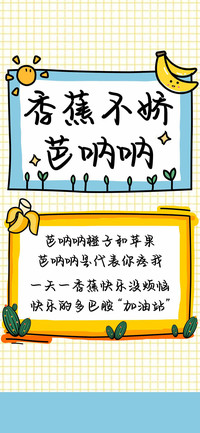 香蕉不娇
芭呐呐
芭呐呐橙子和苹果
芭呐呐是代表你疼我
一天一香蕉快乐没烦恼
快乐的多巴胺“加油站”